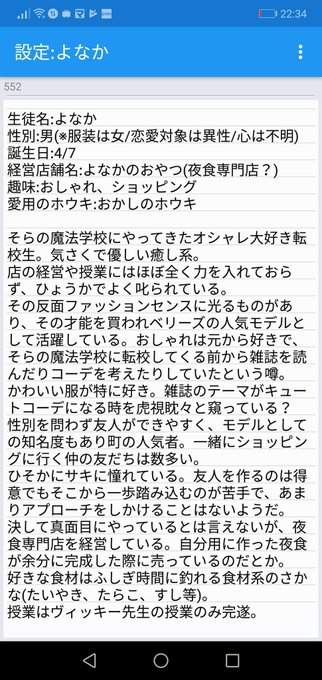 22:34
設定:よなか
552
生徒名:よなか
性別:男(※服装は女/恋愛対象は異性/心は不明)
誕生日:4/7
経営店舗名:よなかのおやつ(夜食専門店？)
趣味:おしゃれ、ショッピング
愛用のホウキ:おかしのホウキ
そらの魔法学校にやってきたオシャレ大好き転
校生。気さくで優しい癒し系。
店の経営や授業にはほぼ全く力を入れておら
ず、ひょうかでよく叱られている。
その反面ファッションセンスに光るものがあ
り、その才能を買われベリーズの人気モデルと
して活躍している。おしゃれは元から好きで、
そらの魔法学校に転校してくる前から雑誌を読
んだりコーデを考えたりしていたという噂。
かわいい服が特に好き。雑誌のテーマがキュー
トコーデになる時を虎視眈々と窺っている？
性別を問わず友人ができやすく、モデルとして
の知名度もあり町の人気者。一緒にショッピン
グに行く仲の友だちは数多い。
ひそかにサキに憧れている。友人を作るのは得
意でもそこから一歩踏み込むのが苦手で、あま
りアプローチをしかけることはないようだ。
決して真面目にやっているとは言えないが、夜
食専門店を経営している。自分用に作った夜食
が余分に完成した際に売っているのだとか。
好きな食材はふしぎ時間に釣れる食材系のさか
な(たいやき、たらこ、すし等)。
授業はヴィッキー先生の授業のみ完遂。